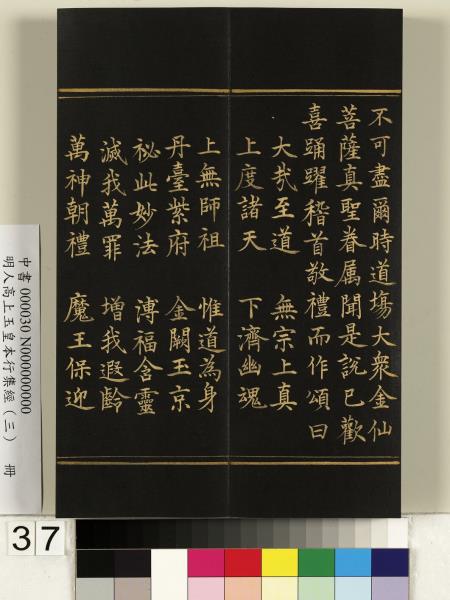 不可盡爾時道場大衆金仙
菩薩真聖眷属聞是說已歡
喜踊躍稽首敬禮而作頌曰
大哉至道 無宗上真
上度諸天 下濟幽魂
上無師祖 惟道為身
丹臺紫府 金闕玉京
袐此妙法 溥福含靈
滅我萬罪 增我遐齡
萬神朝禮 魔王保迎
中書 000030 N000000000
明人高上玉皇本行集經（三） 冊
37